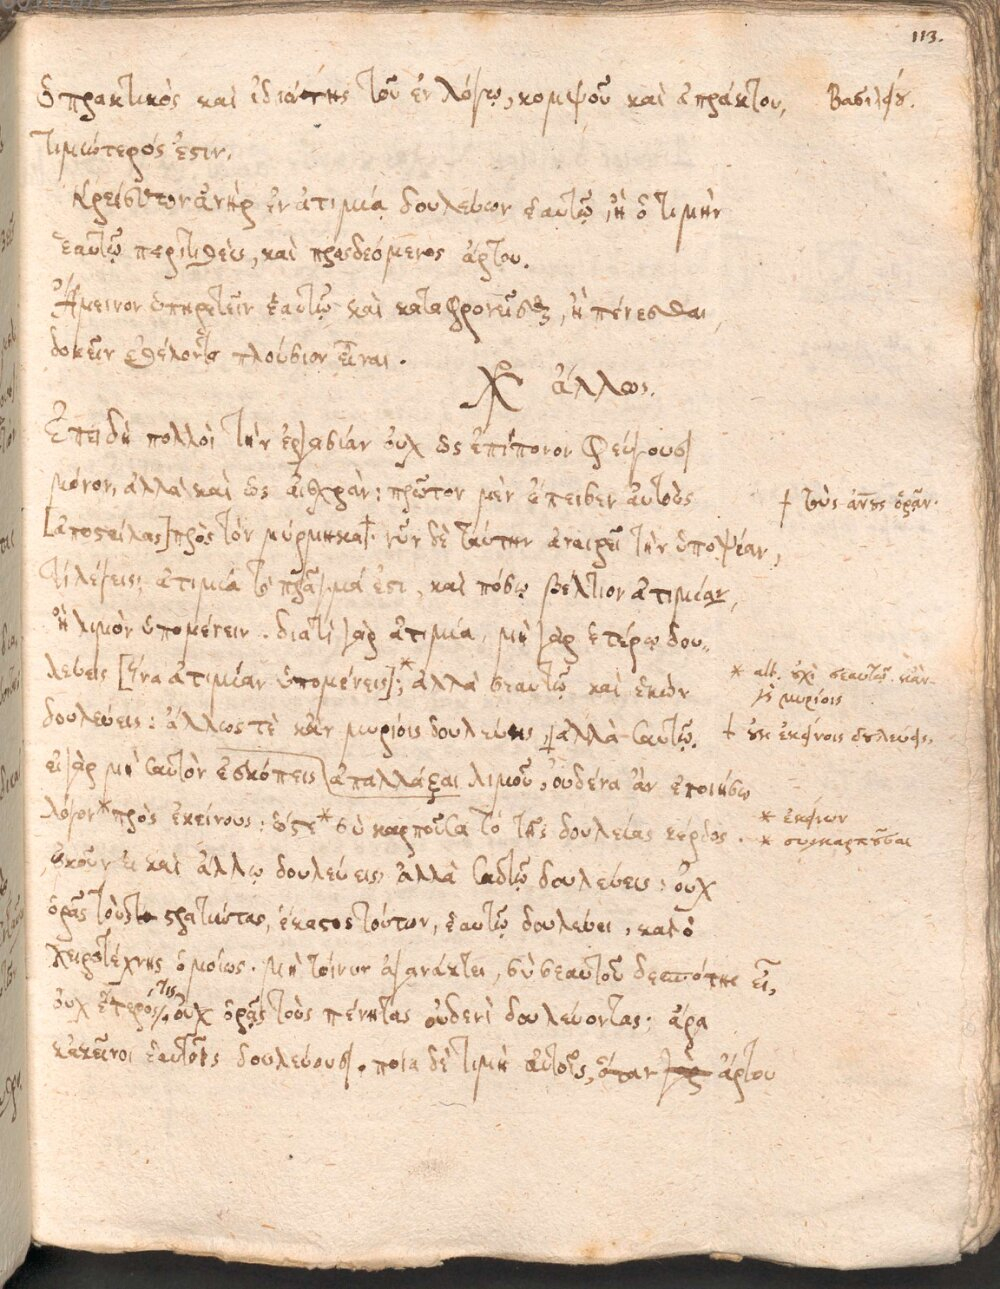 113.
ὁ πρακτικὸς καὶ ἰδιώτης τοῦ ἐν λόγῳ, κομψοῦ καὶ ἀπράκτου, Βασιλείου.
τιμιώτερός ἐστιν.
Κρείσσων ἀνὴρ ἐν ἀτιμίᾳ δουλεύων ἑαυτῷ, ἢ ὁ τιμὴν
ἑαυτῷ περιτιθεὶς, καὶ προσδεόμενος ἄρτου.
Ἄμεινον ὑπηρετεῖν ἑαυτῷ καὶ καταφρονεῖσθαι, ἢ πένεσθαι,
δοκεῖν ἐθέλοντα πλούσιον εἶναι.
Χρ ἄλλως.
Ἐπειδὴ πολλοὶ τὴν ἐργασίαν οὐχ ὡς ἐπίπονον φεύγουσι
μόνον, ἀλλὰ καὶ ὡς αἰσχράν: πρῶτον μὲν ἔπειθεν αὐτοὺς † τοὺς ἀνθρώπους ὁρᾶν.
[ἀποστείλας] πρὸς τὸν μύρμηκα†. νῦν δὲ ταύτην ἀναιρεῖ τὴν ὑποψίαν,
Τί λέγεις; ἀτιμία τὸ πρᾶγμά ἐστι, καὶ πόσῳ βέλτιον ἀτιμίαν,
ἢ λιμὸν ὑπομένειν. διατί γὰρ ἀτιμία, μὴ γὰρ ἑτέρῳ δου„
λεύεις [ἵνα ἀτιμίαν ὑπομένεις];* ἀλλὰ σεαυτῷ καὶ ἑκὼν * alt. οὐχὶ σεαυτῷ. κἂν
γὰρ μυρίοις
δουλεύεις: ἄλλως τὲ κἂν μυρίοις δουλεύῃς, † ἀλλὰ σαυτῷ. † οὐκ ἐκείνοις δουλεύεις,
εἰ γὰρ μὴ σαυτὸν ἐσκόπεις ἀπαλλάξαι λιμοῦ, οὐδένα ἂν ἐποιήσω
λόγον* πρὸς ἐκείνους: ὥστε* σὺ καρποῦσαι τὸ τῆς δουλείας κέρδος. * ἐκείνων
* συγκαρποῦσαι
ὥστε κἂν εἰ καὶ ἄλλῳ δουλεύεις, ἀλλὰ σαυτῷ δουλεύεις: οὐχ
ὁρᾷς τοὺς στρατιώτας, ἕκαστος τούτων, ἑαυτῷ δουλεύει, καὶ ὁ
χειροτέχνης ὁμοίως. μὴ τοίνυν ἀγανάκτει, σὺ σεαυτοῦ δεσπότης εἶ,
οὐχ ἕτερός τις, οὐχ ὁρᾷς τοὺς πένητας οὐδενὶ δουλεύοντας; ἆρα
κἀκεῖνοι ἑαυτοῖς δουλεύουσι, ποία δὲ τιμὴ αὐτοῖς, ὅταν ἄρτου